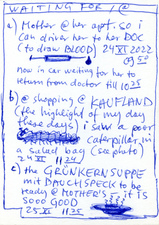 WAITING FOR / @
a) Mother @ her apt. so i
can driver her to her DOC
(to draw BLOOD) 24 XI 2022
09 50
now in car waiting for her to
return from doctor till 10 25
b) @ shopping @ KAUFLAND
(the highlight of my day
these days) i saw a poor
caterpillar in
a salad bag (see photo)
24 XI 11 24
c) the GRÜNKERNSUPPE
mit DAUCHSPECK to be
ready @ MOTHER'S, it is
SOOO GOOD
25 XI 11 25